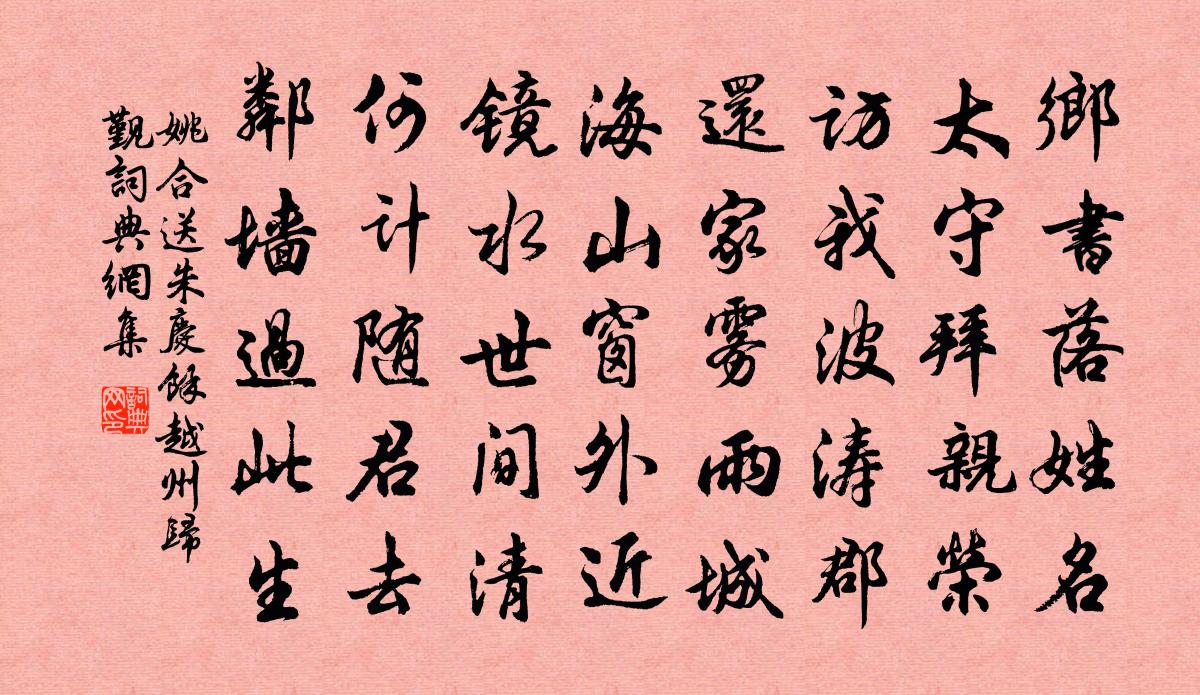 鄉書落姓名
太守拜親榮
訪我波濤郡
還家雾雨城
海山窗外近
镜水世间清
何计随君去
鄰墙過此生
姚合送朱慶餘越州歸
觐詞典網集
詞典网印